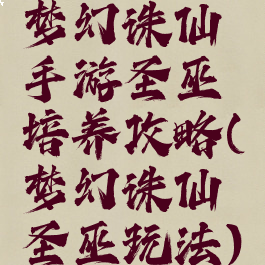 梦幻诛仙
手游圣巫
培养攻略(
梦幻诛仙
圣巫玩法)